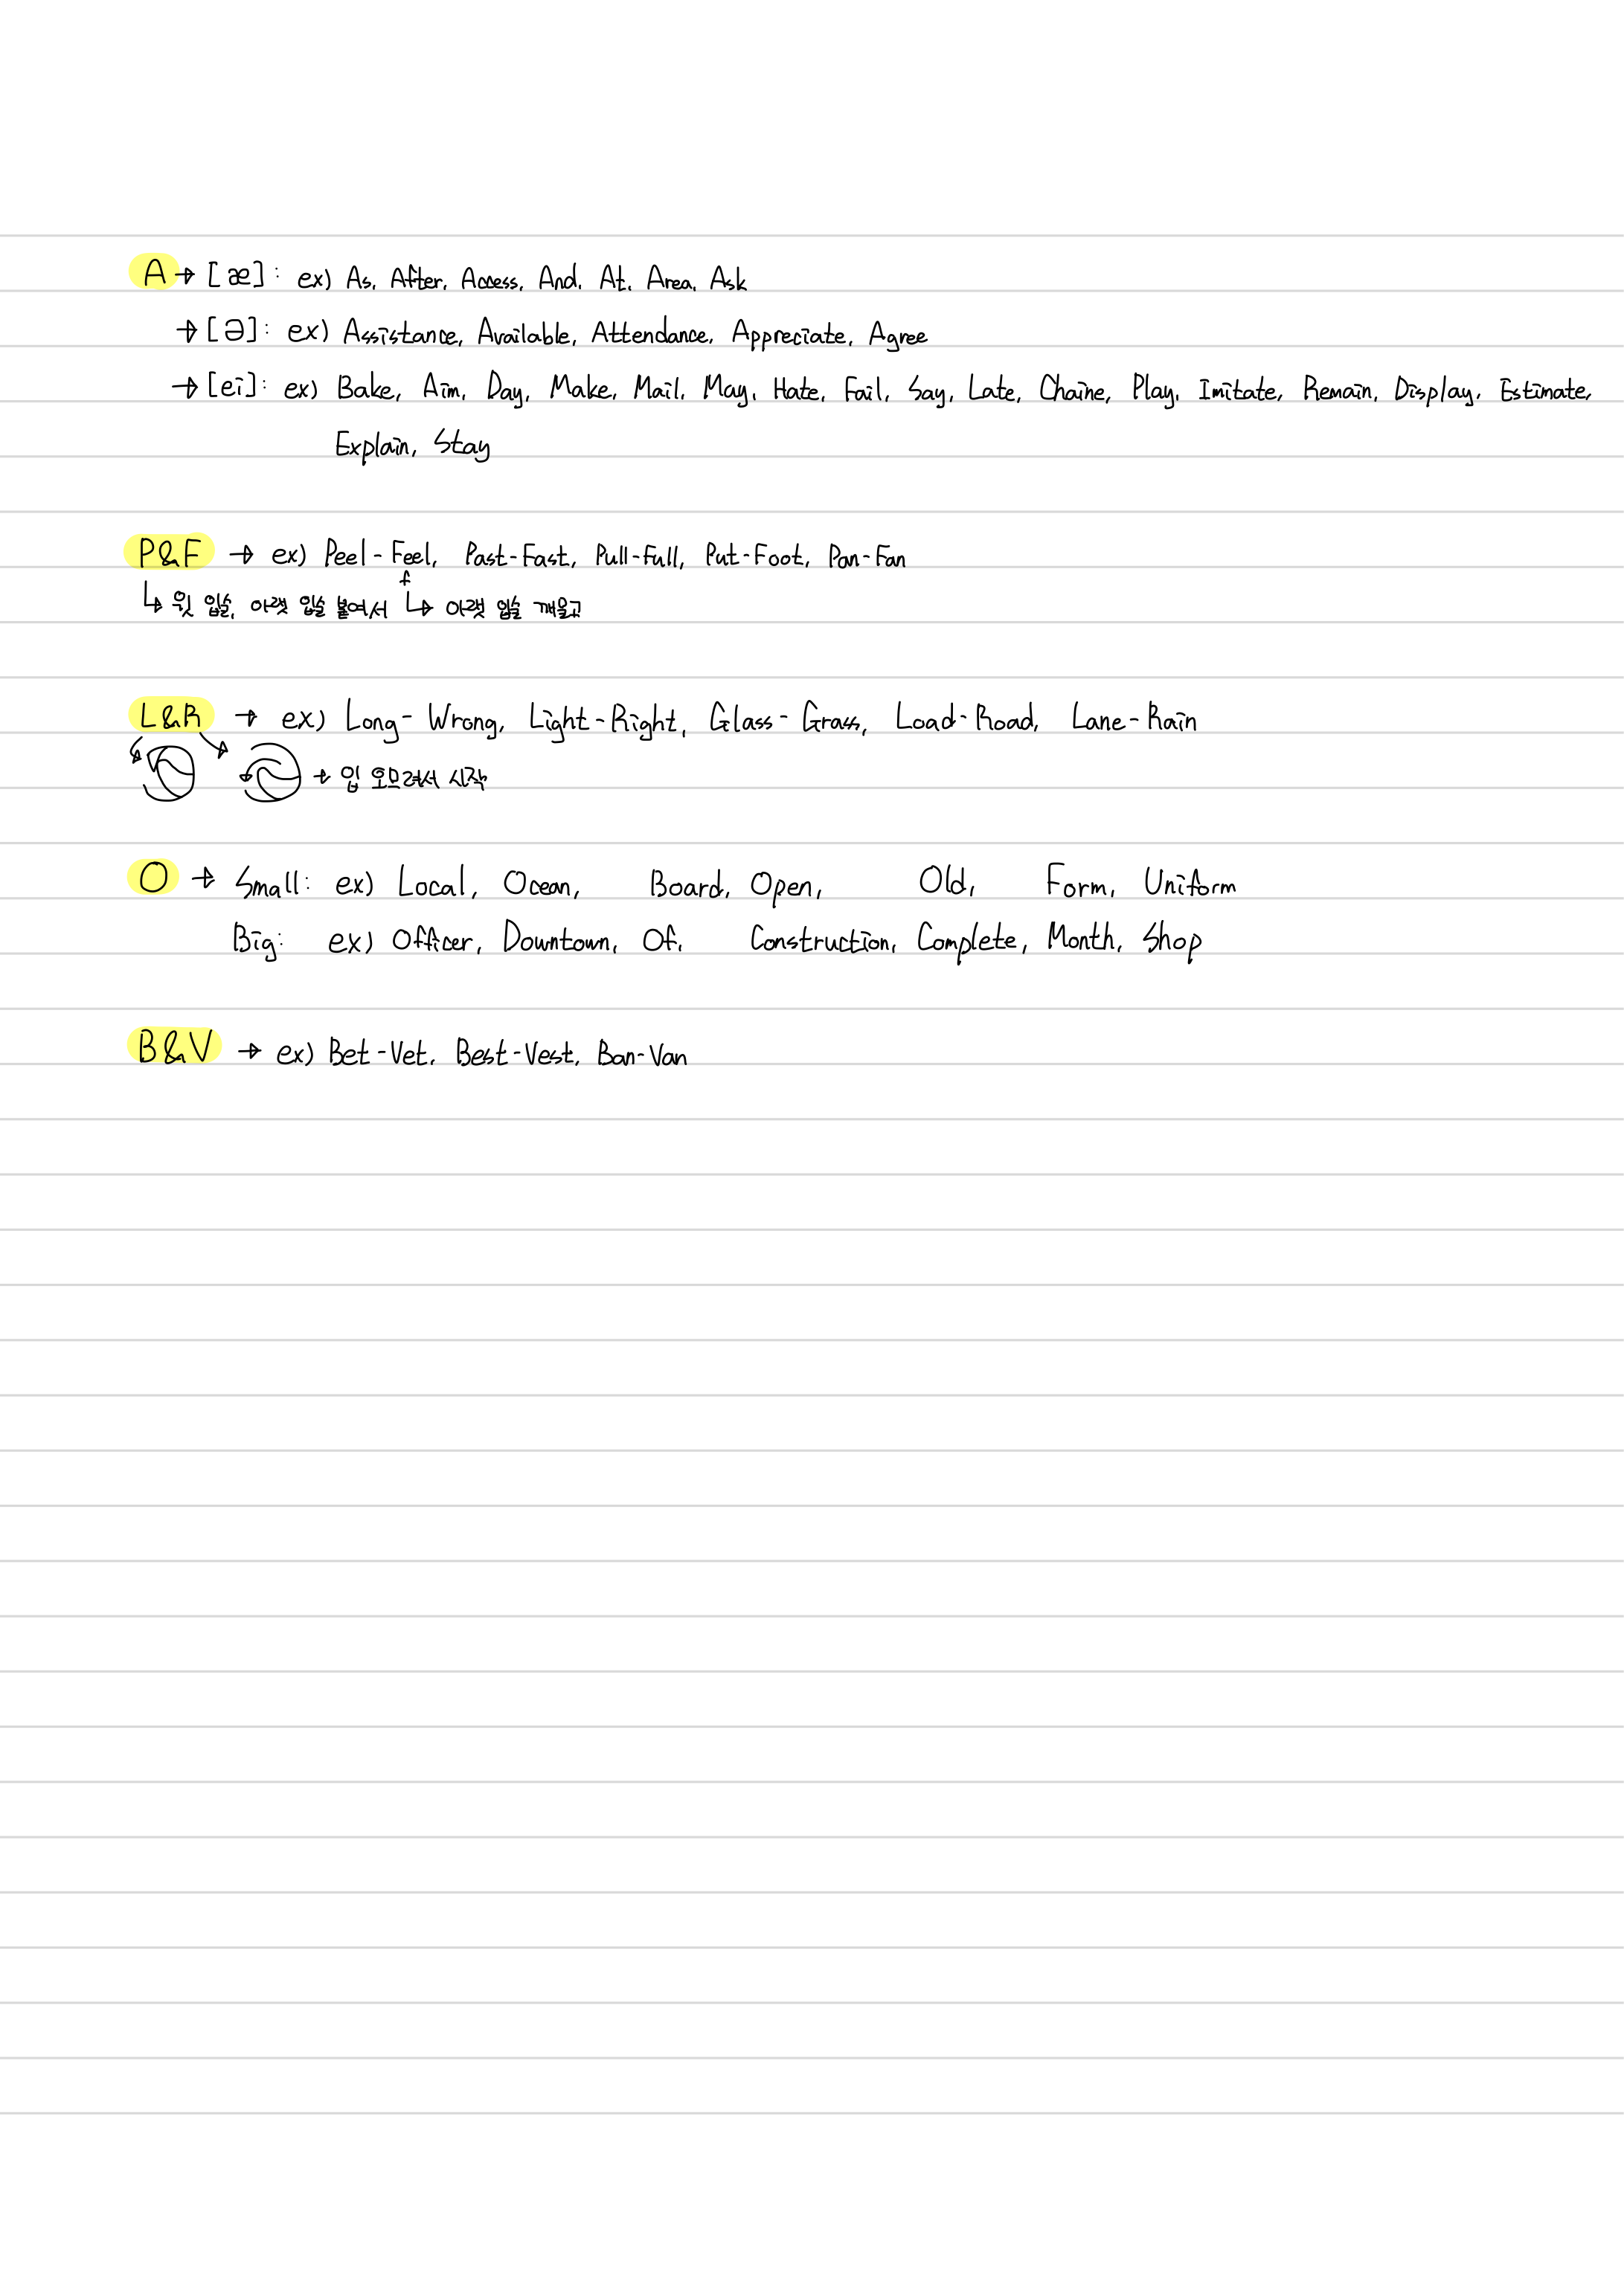 A → [æ] : ex) As, After, Access, And, At, Area, Ask
→ [ə] : ex) Assistance, Available, Attendance, Appreciate, Agree
→ [ei] : ex) Bake, Aim, Day, Make, Mail, May, Hate, Fail, Say, Late, Chaine, Play, Imitate, Remain, Display, Estimate,
Explain, Stay
P&F → ex) Peel-Feel, Past-Fast, Pull-Full, Put-Foot, Pan-Fan
f
↳ 윗 입술, 아랫 입술 붙여서 ↳ 아랫 입술 깨물고
L&R → ex) Long-Wrong, Light-Right, Glass-Grass, Load-Road, Lane-Rain
→ 입 오므려서 시작
O → Small: ex) Local, Ocean, Board, Open, Old, Form, Uniform
Big: ex) Officer, Downtown, Of, Construction, Complete, Month, Shop
B&V → ex) Bet-Vet, Best-Vest, Ban-Van